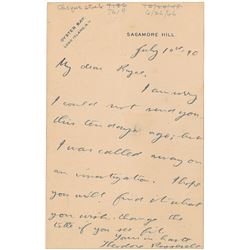 OYSTER BAY
LONG ISLAND, N.Y.
SAGAMORE HILL
July 10th 90
My dear
I am sorry
I could not send you
this ten days ago; but
I was called away on
an investigation. I hope
you will find it what
you wish. Change the
title if you see fit.
Yours in haste
Theodore Roosevelt